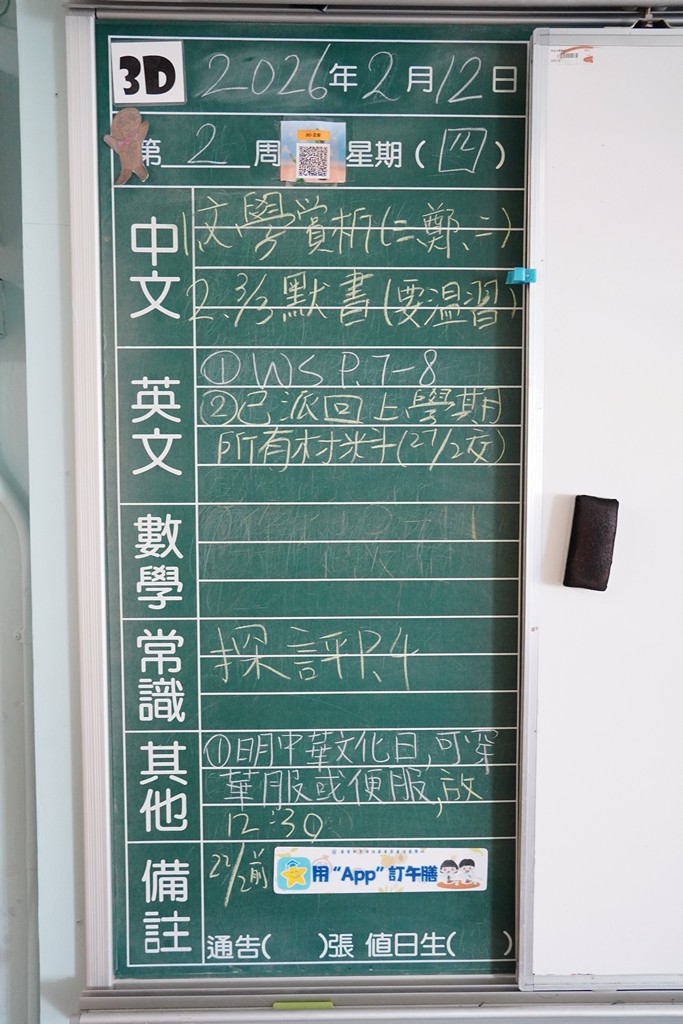 3D 2026年2月12日
第2周 星期(四)
中文
1.文學賞析(二、鄭、二)
2. 3/3默書(要温習)
英文
① WS P.7-8
②已派回上學期
所有材料(27/2交)
數學
常識
探評P.4
其他
①明中華文化日,可穿
華服或便服,放
12:30
備註
22/2前
用“App”訂午膳
通告( )張 值日生( )